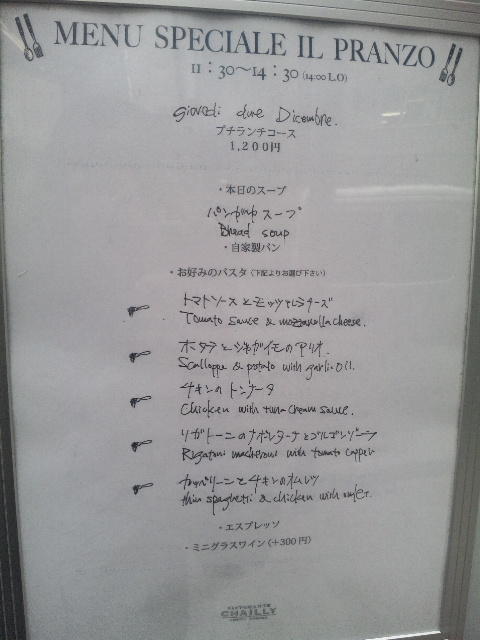 MENU SPECIALE IL PRANZO
11:30〜14:30 (14:00 L.O)
giovedi due Dicembre.
プチランチコース
1,200円
・本日のスープ
スープ
Bread soup
・自家製パン
・お好みのパスタ（下記よりお選び下さい）
トマトソースとモッツァレラチーズ
Tomato sauce & mozzarella cheese.
ホタテとジャガイモのアーリオ
Scalloppe & potato with garlic oil.
チキンのトンナータ
Chicken with tuna cream sauce.
リガトーニのナポレターナとゴルゴンゾーラ
Rigatoni maccheroni with tomato
カッペリーニとチキンのオムレツ
thin spaghetti & chicken with
・エスプレッソ
・ミニグラスワイン（＋300円）
RISTORANTE
CHAILLY